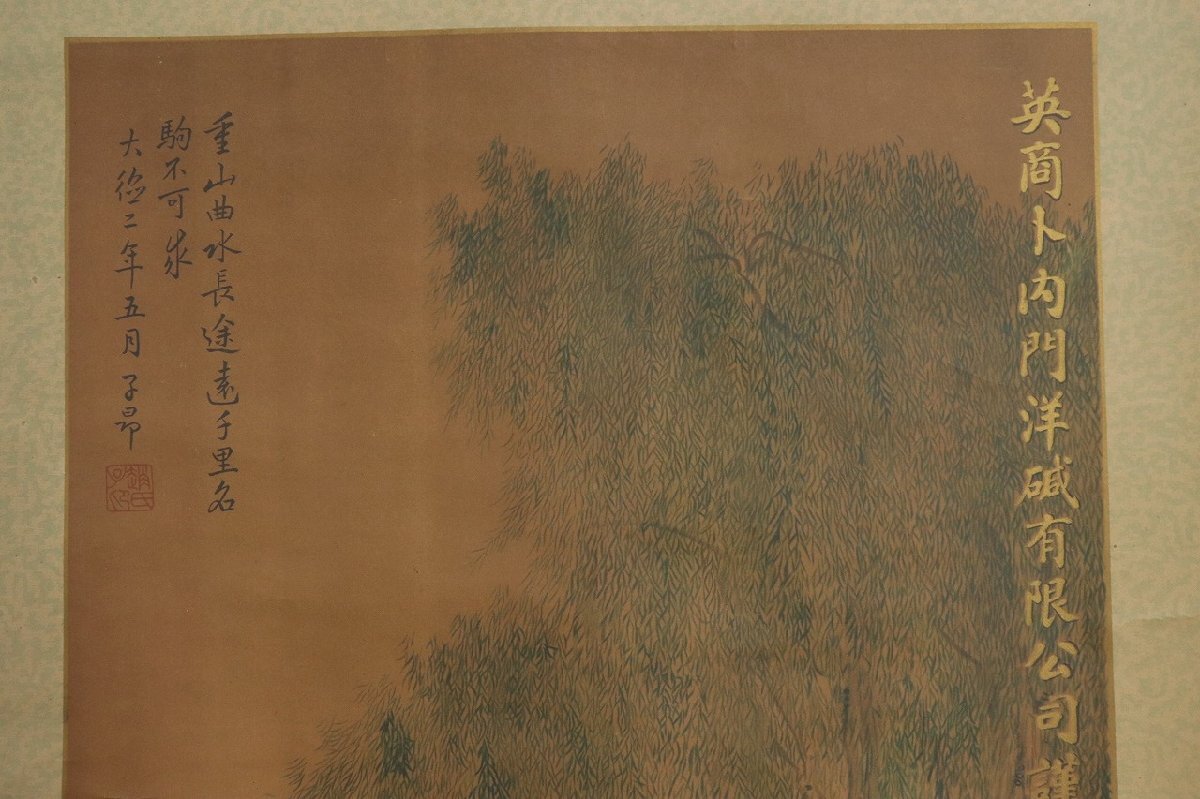 英商卜內門洋碱有限公司謹
重山曲水長途遠千里名
駒不可求
大德二年五月子昂
趙氏